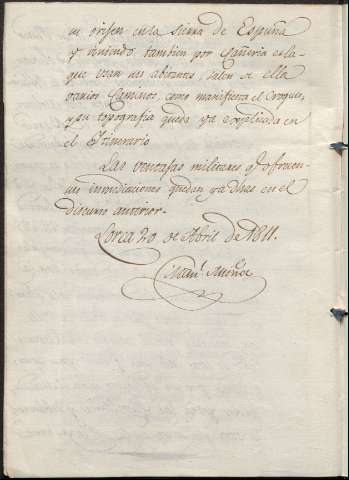 su origen en la Sierra de Espuña
y viniendo tambien por Cañeria es la
que usan sus abitantes, salen de ella
varios Caminos, como manifiesta el Croquis,
y su topografía queda ya explicada en
el Itinerario
Las ventajas militares q.e ofrecen
sus inmediaciones quedan ya dhas en el
discurso anterior.
Lorca 20 de Abril de 1811.
Man.l Muñoz